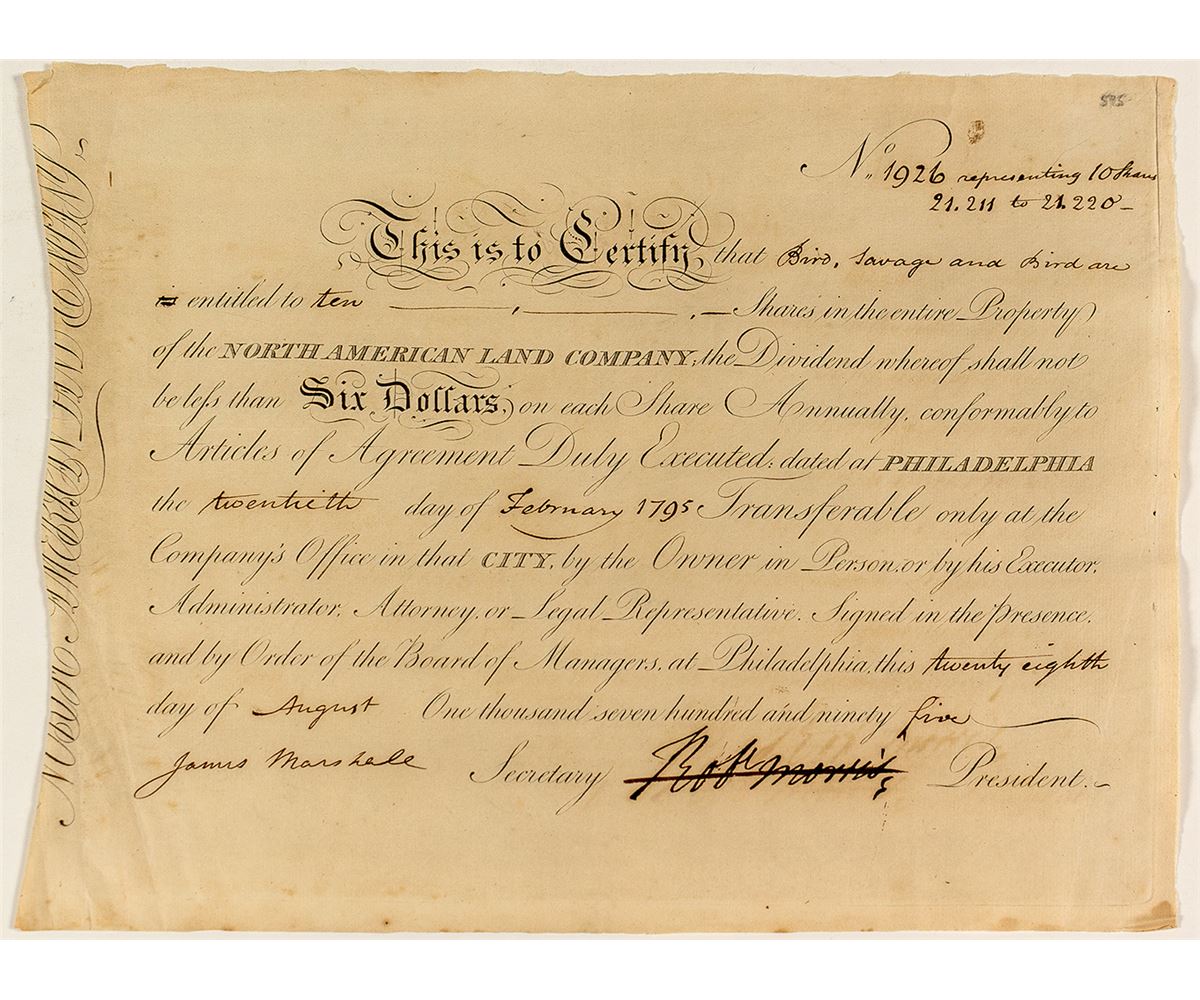 595
No. 1926 representing 10 Shares
21.211 to 21.220 –
This is to Certify, that Bird, Savage and Bird are
is entitled to ten ———,———,— Shares in the entire Property
of the NORTH AMERICAN LAND COMPANY; the Dividend whereof shall not
be leſs than Six Dollars, on each Share Annually, conformably to
Articles of Agreement Duly Executed: dated at PHILADELPHIA
the twentieth day of February 1795 Transferable only at the
Company's Office in that CITY, by the Owner in Person, or by his Executor,
Administrator, Attorney, or Legal Representative. Signed in the presence,
and by Order of the Board of Managers, at Philadelphia, this twenty eighth
day of August One thousand seven hundred and ninety five
James Marshall Secretary Robt Morris President.
NORTH AMERICAN LAND COMPANY